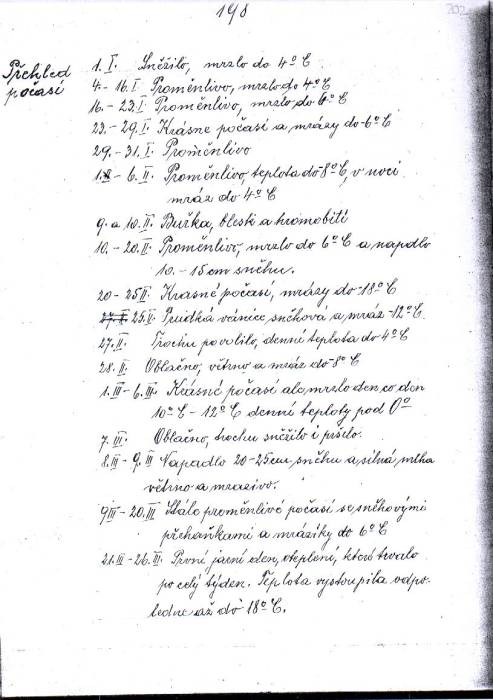 198
202
Přehled
počasí
1. I. Sněžilo, mrzlo do 4° C
4.- 16. I Proměnlivo, mrzlo do 4° C
16. - 23. I. Proměnlivo, mrzlo do 6° C
23. - 29. I. Krásne počasí a mrázy do -6° C
29. - 31. I. Proměnlivo
1. - 6. II. Proměnlivo, teplota do -8° C, v noci
mráz do 4° C
9. a 10. II. Buřka, bleski a hromobití
10. - 20. II. Proměnlivo, mrzlo do 6° C a napdlo
10. - 15 cm sněhu.
20 - 25 II. Krasné počasí, mrázy do -18° C
25. II. Prudká vánice sněhová a mráz -12° C
27. II. Trochu povolilo, denní teplota do 4° C
28. II. Oblačno, větrno a mráz do -8° C
1. III - 6. III. Krásné počasí ale mrzlo den co den
10° C - 12° C denní teploty pod 0°
7. III. Oblačno, trochu sněžilo i pršelo.
8. III - 9. III Napadlo 20-25 cm sněhu a silná mlha
větrno a mrazivo.
9 III - 20. III Stálo proměnlivé počasí se sněhovými
přeháňkami a mrázíky do 6° C
21. III - 26. III. První jarní den, oteplení, které trvalo
po celý týden. Teplota vystoupila odpo-
ledne až do 18° C.